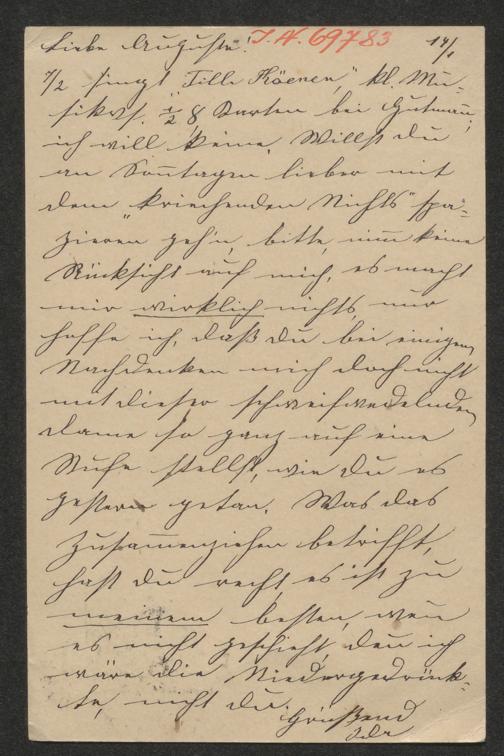 Liebe Auguste! I. N. 69783 14/1
7/2 singt "Tilli Köenen", kl. Mu-
sikvs. ½ 8 Karten bei Gutmann,
ich will keine. Willst du
an Sonntagen lieber mit
dem "kriechenden Nichts" spa-
zieren geh'n, bitte, nim̅ keine
Rücksicht auf mich, es macht
mir wirklich nichts, nur
hoffe ich, daß du bei einigem
Nachdenken mich doch nicht
mit dieser schweifwedelnden
Dame so ganz auf eine
Stufe stellst, wie du es
gestern getan. Was das
Zusam̅enziehen betrifft,
hast du recht, es ist zu
meinem besten, wen̅
es nicht geschieht, den̅ ich
wäre die Niedergedrück-
te, nicht du.
Grüßend
Ida